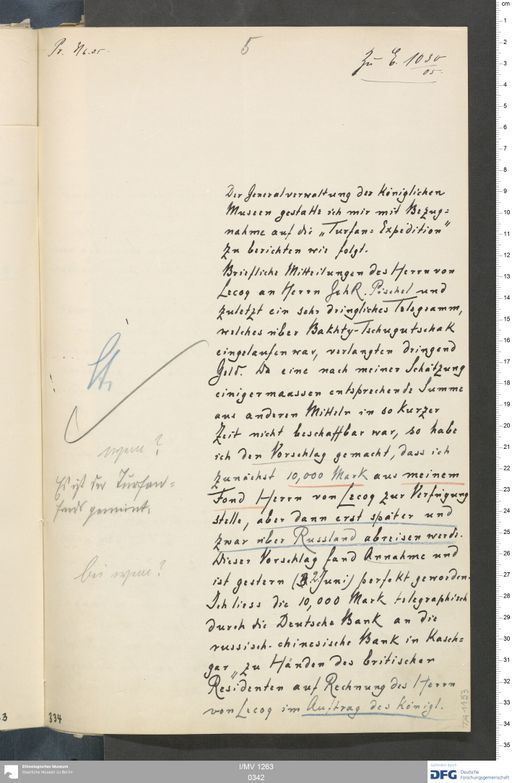 Pr. 76.05.
5
Zu E. 1030/05.
Der Generalverwaltung der Königlichen
Museen gestatte ich mir mit Bezug=
nahme auf die „Turfan-Expedition“
zu berichten wie folgt.
Briefliche Mitteilungen des Herrn von
Lecoq an Herrn GehR. Pischel und
zuletzt ein sehr dringliches Telegramm,
welches über Bakhty-Tschugutschak
eingelaufen war, verlangten dringend
Geld. Da eine nach meiner Schätzung
einigermaassen entsprechende Summe
aus anderen Mitteln in so kurzer
Zeit nicht beschaffbar war, so habe
ich den Vorschlag gemacht, dass ich
zunächst 10,000 Mark aus meinem
Fond Herrn von Lecoq zur Verfügung
stelle, aber dann erst später und
zwar über Russland abreisen werde.
Dieser Vorschlag fand Annahme und
ist gestern (2 Juni) perfekt geworden.
Ich liess die 10,000 Mark telegraphisch
durch die Deutsche Bank an die
russisch-chinesische Bank in Kasch=
gar „zu Händen des britischen
Residenten auf Rechnung des Herrn
von Lecoq im Auftrag des Königl.
wem?
Es ist der Turfan=
fonds gemeint.
bei wem?
334
Ethnologisches Museum
Staatliche Museen zu Berlin
I/MV 1263
0342
Gefördert durch
DFG Deutsche
Forschungsgemeinschaft